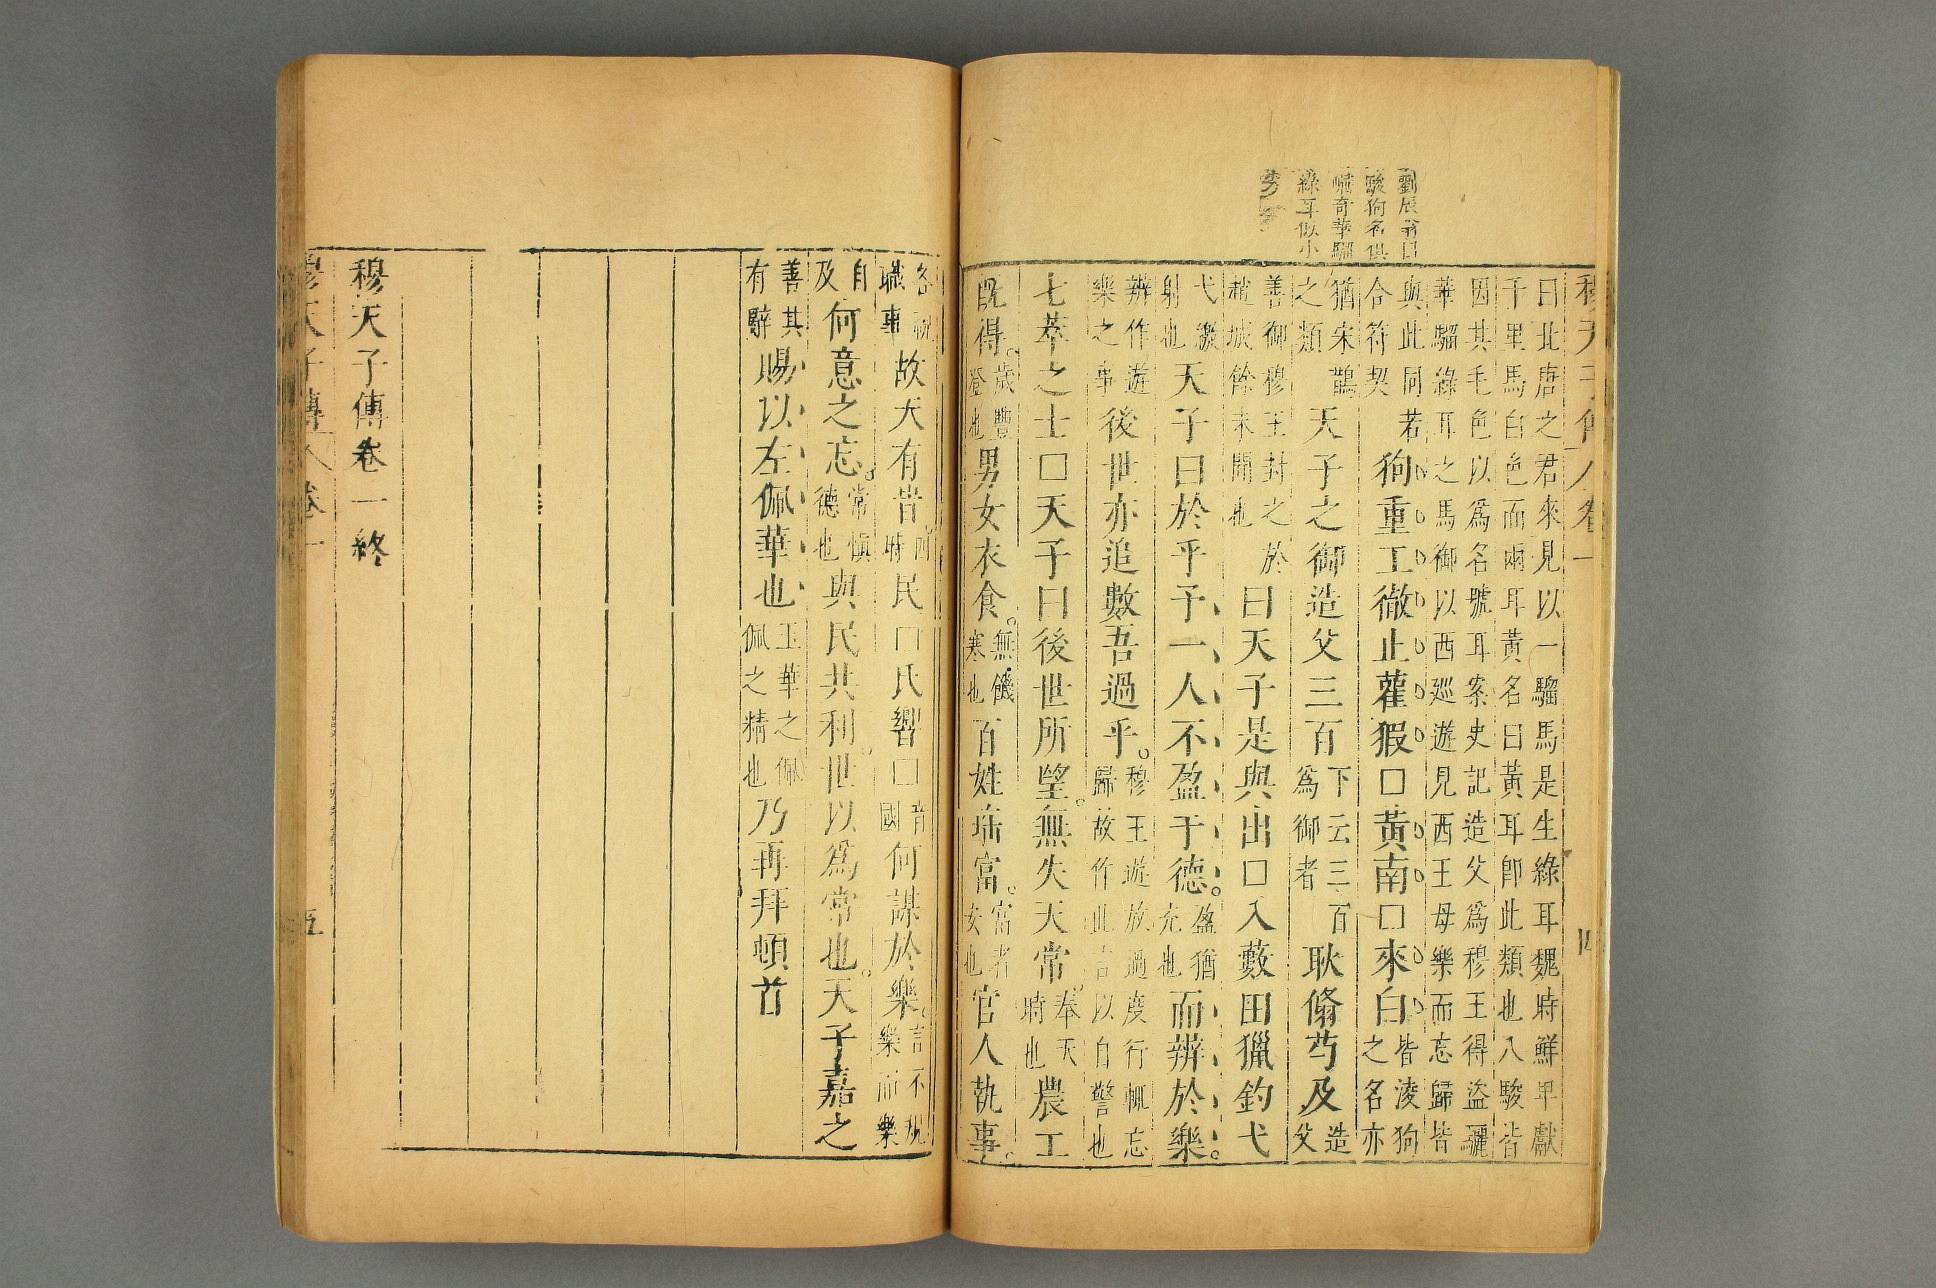 穆天子傳 卷一 四
劉辰翁曰
駿狗名俱
奇華騮
綠耳似小
曰北唐之君來見以一騮馬是生綠耳魏時鮮卑獻
千里馬白色而兩耳黃名曰黃耳即此類也八駿皆
因其毛色以為名號耳案史記造父為穆王得盜驪
華騮綠耳之馬御以西巡遊見西王母樂而忘歸皆
與此同合符契若狗重工徹止雚猳□黃南□來白皆淩狗之名亦
猶宋鵲之類天子之御造父三百下云三百為御者耿翛芍及造父
善御穆王封之於趙城餘未聞也曰天子是與出□入藪田獵釣弋
弋繳射也天子曰於乎予一人不盈于德。盈猶充也而辨於樂。
辨作遊樂之事後世亦追數吾過乎。穆王遊放過度行輒忘歸故作此言以自警也
七萃之士□天子曰後世所望。無失天常。奉天時也農工
既得。歲豐登也男女衣食。無饑寒也百姓珤富。富者安也官人執事。
各視職事故天有旹四時民□氏響□音國何謀於樂。言不規樂而樂
自及何意之忘。常慎德也與民共利。世以為常也。天子嘉之
善其有辭賜以左佩華也玉華之佩佩之精也乃再拜頓首
穆天子傳卷一終
穆天子傳 卷一 五